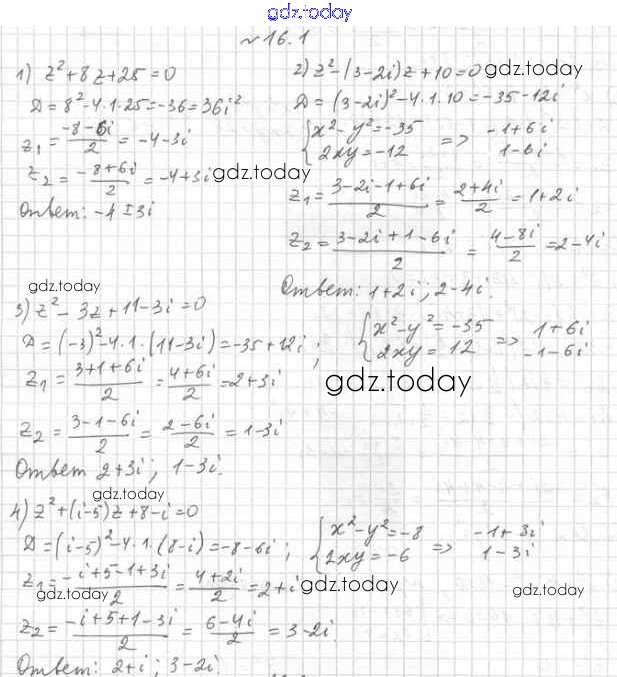 gdz.today
№16.1
1) z²+8z+25=0
D=8²-4·1·25=-36=36i²
z₁=(-8-6i)/2=-4-3i
z₂=(-8+6i)/2=-4+3i
gdz.today
Ответ: -4±3i
2) z²-(3-2i)z+10=0
gdz.today
D=(3-2i)²-4·1·10=-35-12i
{x²-y²=-35
2xy=-12 => -1+6i
1-6i
z₁=(3-2i-1+6i)/2=(2+4i)/2=1+2i
z₂=(3-2i+1-6i)/2=(4-8i)/2=2-4i
Ответ: 1+2i; 2-4i.
gdz.today
3) z²-3z+11-3i=0
D=(-3)²-4·1·(11-3i)=-35+12i;
{x²-y²=-35
2xy=12 => 1+6i
-1-6i
z₁=(3+1+6i)/2=(4+6i)/2=2+3i
gdz.today
z₂=(3-1-6i)/2=(2-6i)/2=1-3i
Ответ 2+3i; 1-3i.
gdz.today
4) z²+(i-5)z+8-i=0
D=(i-5)²-4·1·(8-i)=-8-6i;
{x²-y²=-8
2xy=-6 => -1+3i
1-3i
z₁=(-i+5-1+3i)/2=(4+2i)/2=2+i
gdz.today
gdz.today
gdz.today
z₂=(-i+5+1-3i)/2=(6-4i)/2=3-2i.
Ответ: 2+i; 3-2i.